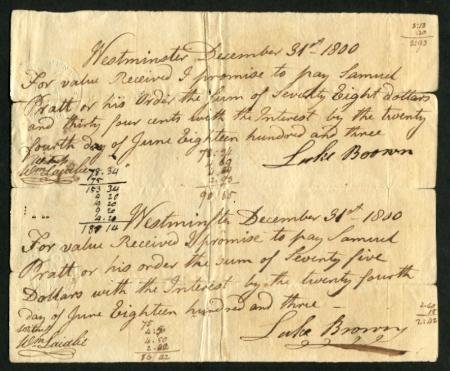 3.13
.20
Westminster December 31st 1800
For value Received I promise to pay Samuel
Pratt or his Order the Sum of Seventy Eight dollars
and thirty four cents with the Interest by the twenty
fourth day of June Eighteen hundred and three
Luke Brown
Wm Laidlie
78.34
75
153 34
9 20
9 20
4.20
Westminster December 31st 1800
For value Received I promise to pay Samuel
Pratt or his order the sum of Seventy five
Dollars with the Interest by the twenty fourth
day of June Eighteen hundred and three
Luke Brown
Wm Laidlie
75
4.50
4.50